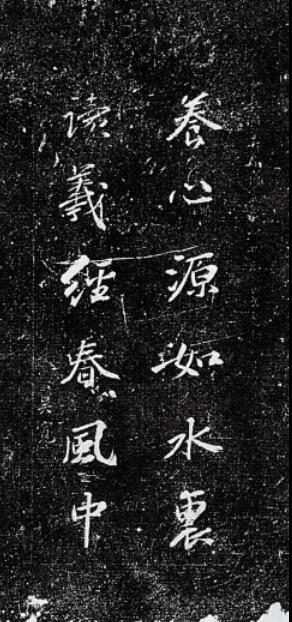 養心源如水裏
讀義經春風中